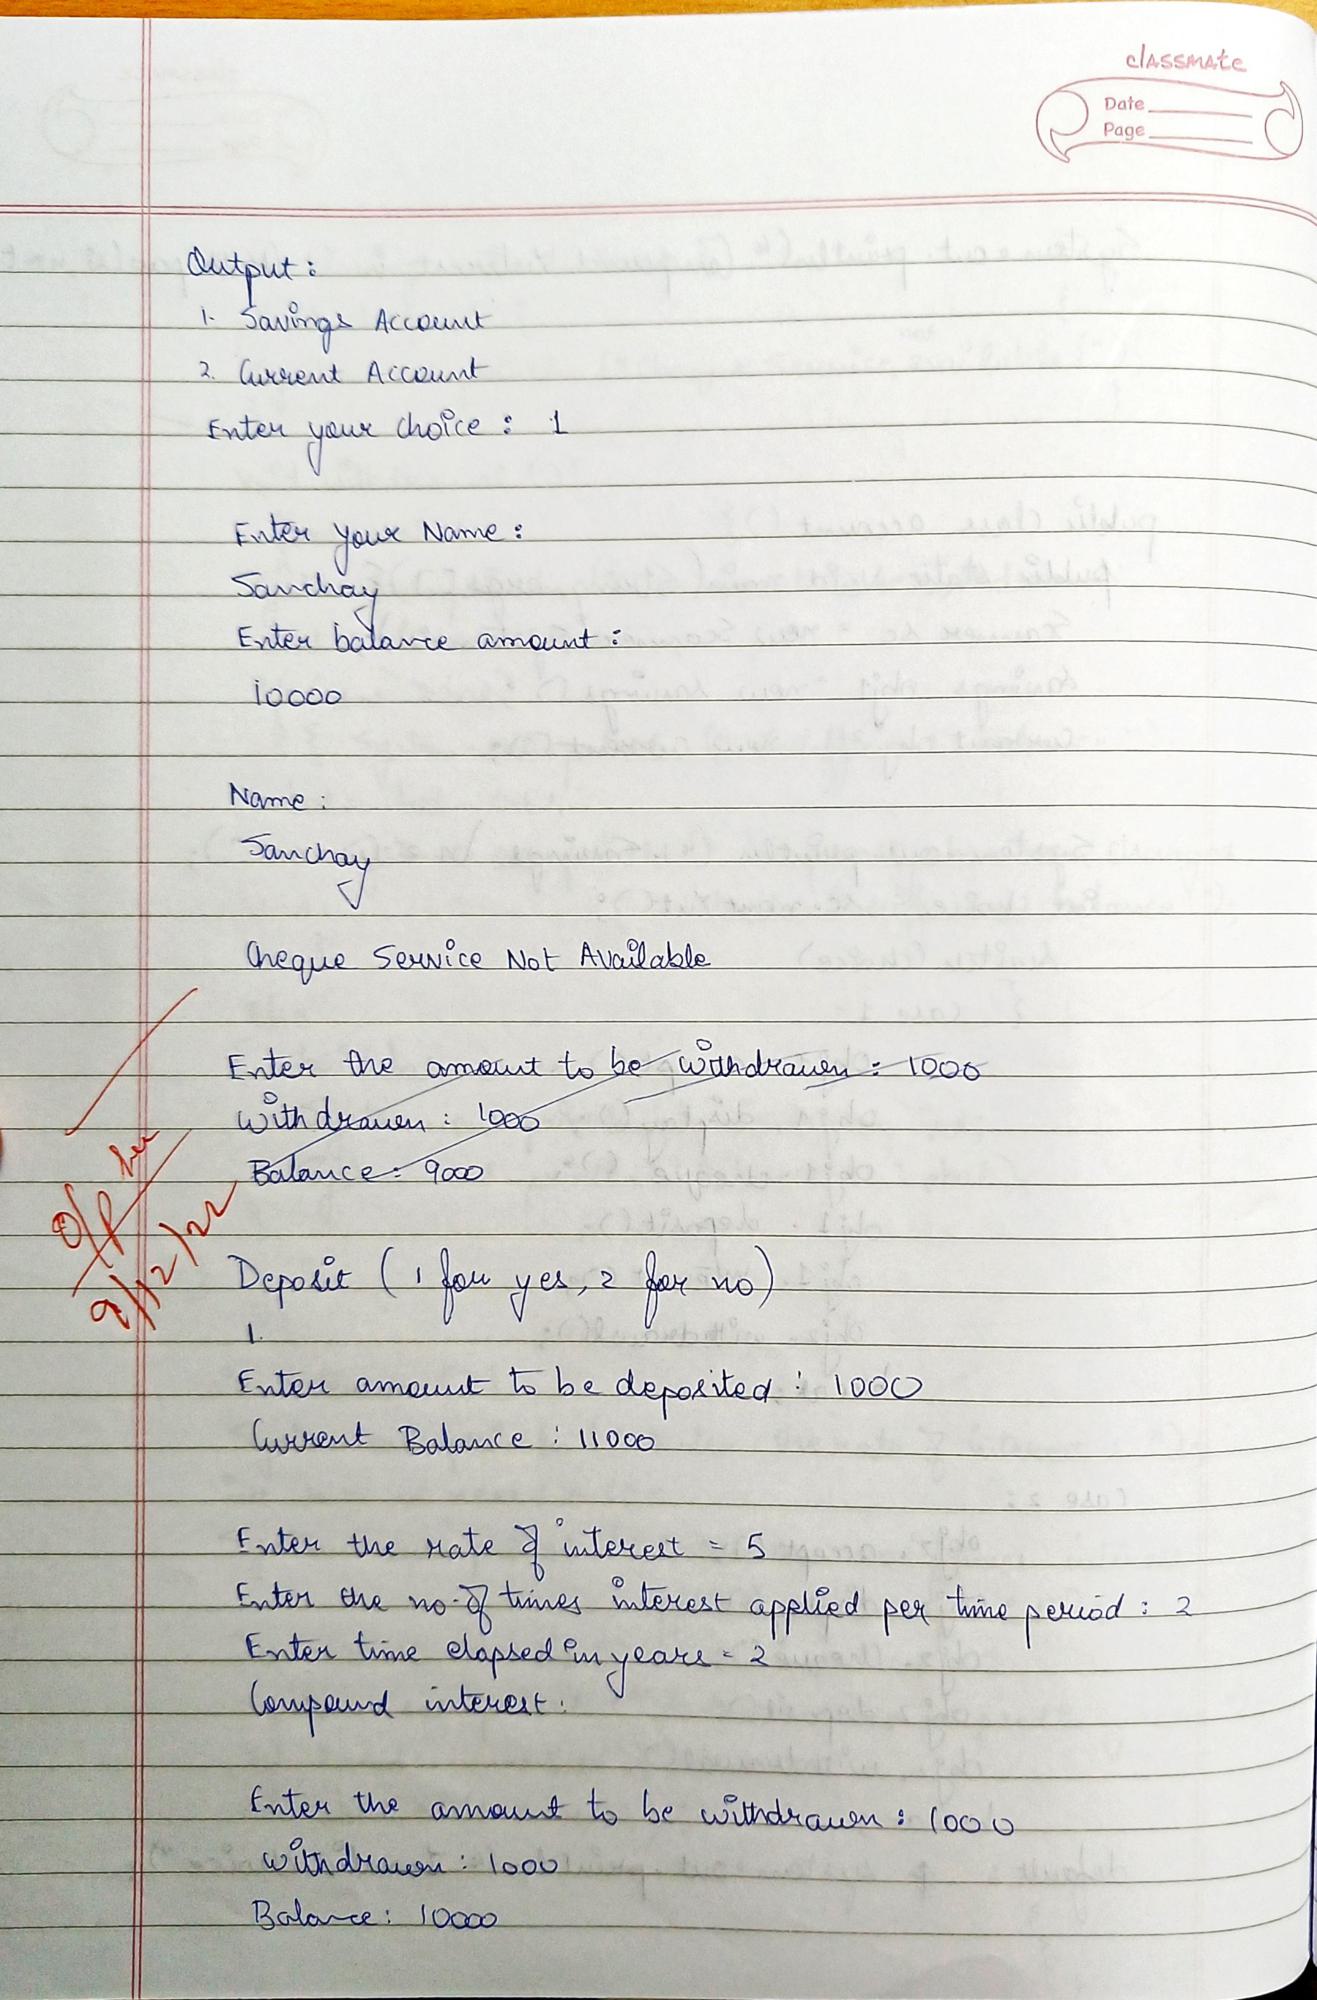 classmate
Date
Page
Output:
1. Savings Account
2. Current Account
Enter your choice: 1
Enter your Name:
Sanchay
Enter balance amount:
10000
Name:
Sanchay
Cheque Service Not Available
Enter the amount to be withdrawn: 1000
Withdrawn: 1000
Balance: 9000
O/P
9/12/22
Deposit (1 for yes, 2 for no)
1.
Enter amount to be deposited: 1000
Current Balance: 11000
Enter the rate of interest = 5
Enter the no. of times interest applied per time period: 2
Enter time elapsed in years = 2
Compound interest:
Enter the amount to be withdrawn: 1000
withdrawn: 1000
Balance: 10000